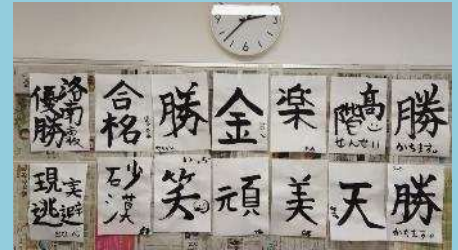 洛南
優勝
合格
勝
金
楽
高階
せんせい
勝
かちます。
現実
逃避
砂漠
笑
頑
美
天
勝
かちます。